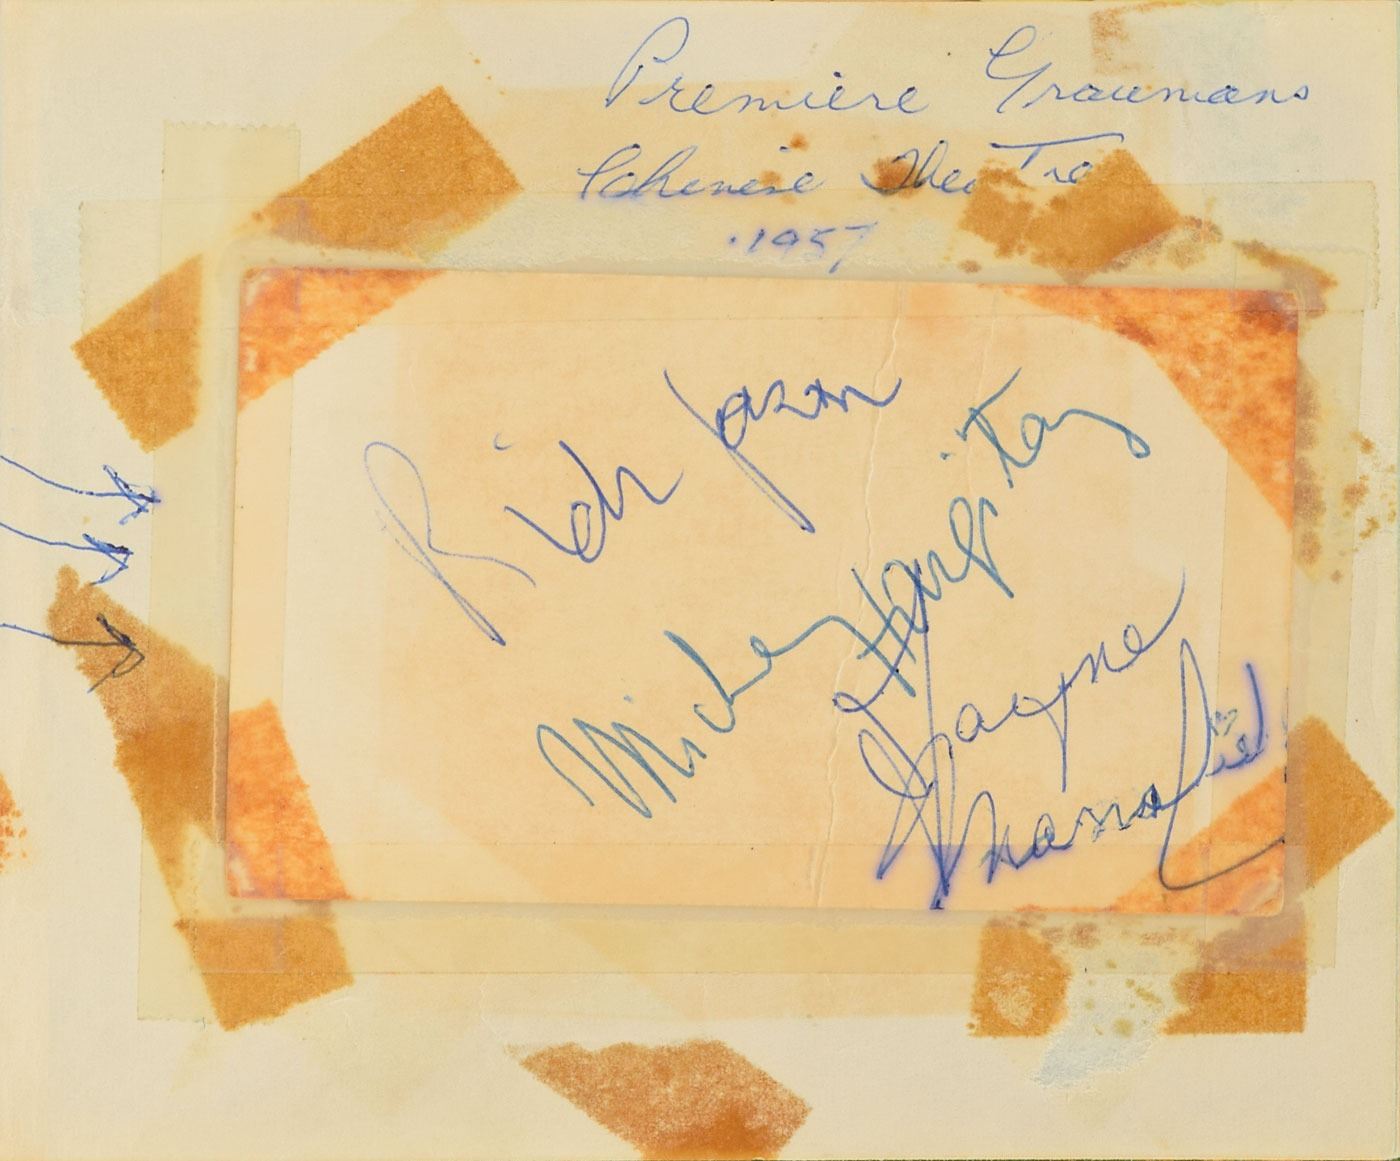 Premiere Graumans
Cehinese Theatre
.1957
Rick Jason
Mickey Hargitay
Jayne
Mansfield